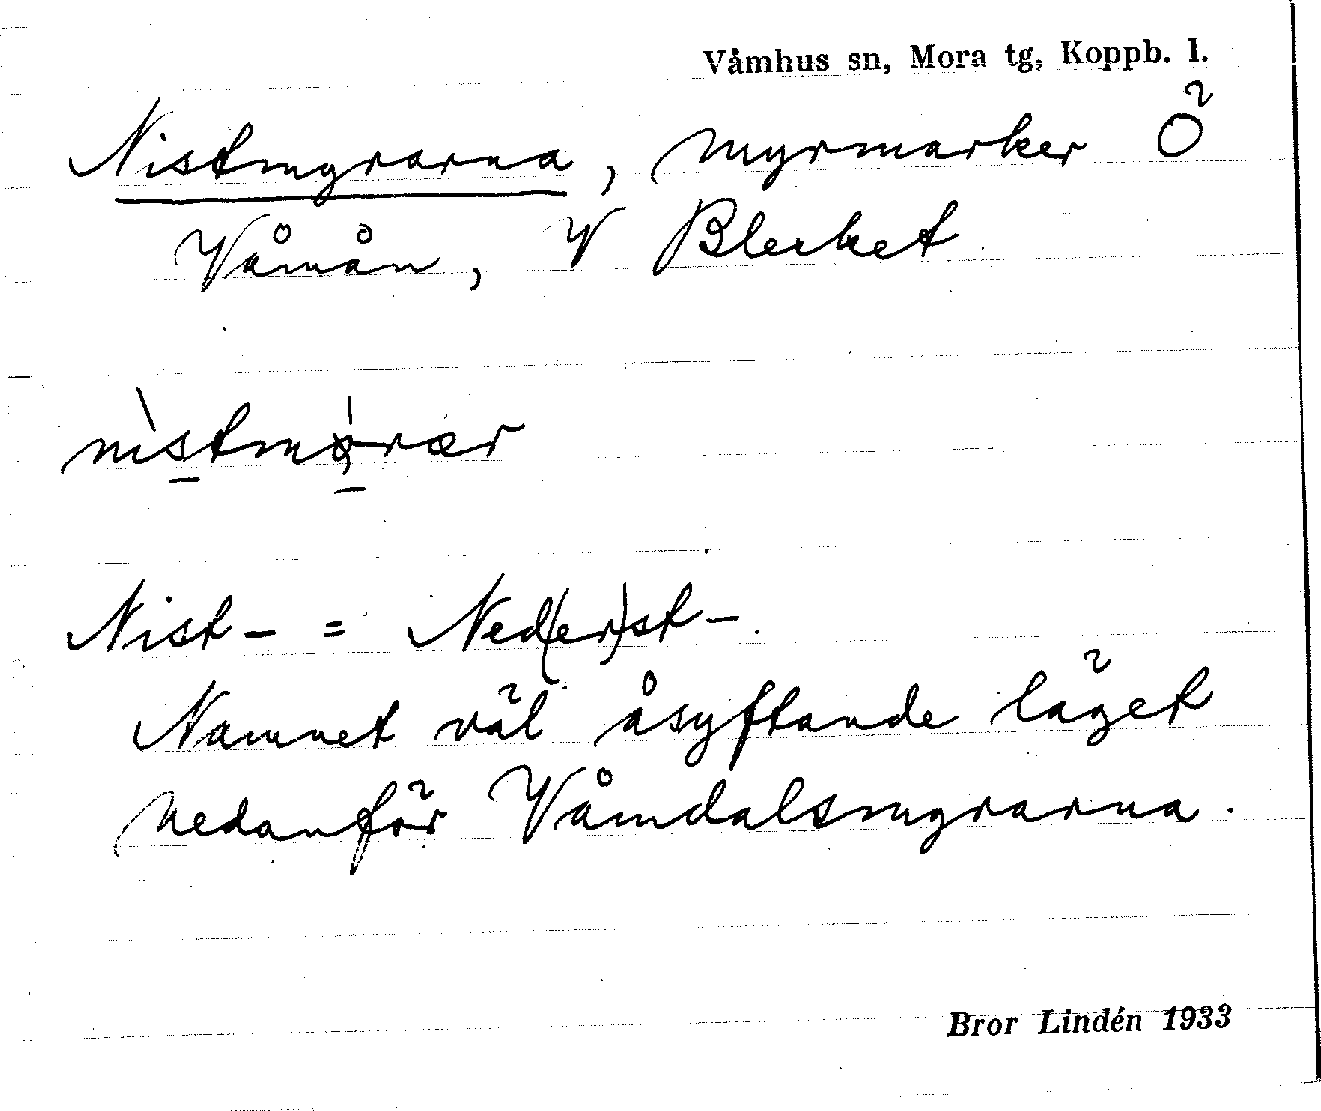 Våmhus sn, Mora tg, Koppb. l.
Nistmyrarna, myrmarker Ö
Våmån, V Blecket
Nist- = Ned(er)st-.
Namnet väl åsyftande läget
nedanför Våmdalsmyrarna.
Bror Lindén 1933